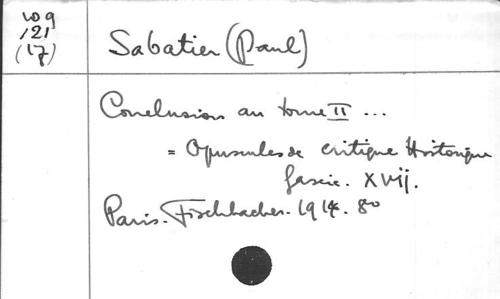 109
121
(17)
Sabatier (Paul)
Conclusion au tome II ...
= Opuscules de critique Historique
fascic. XVIJ.
Paris. Fischbacher. 1914. 8º